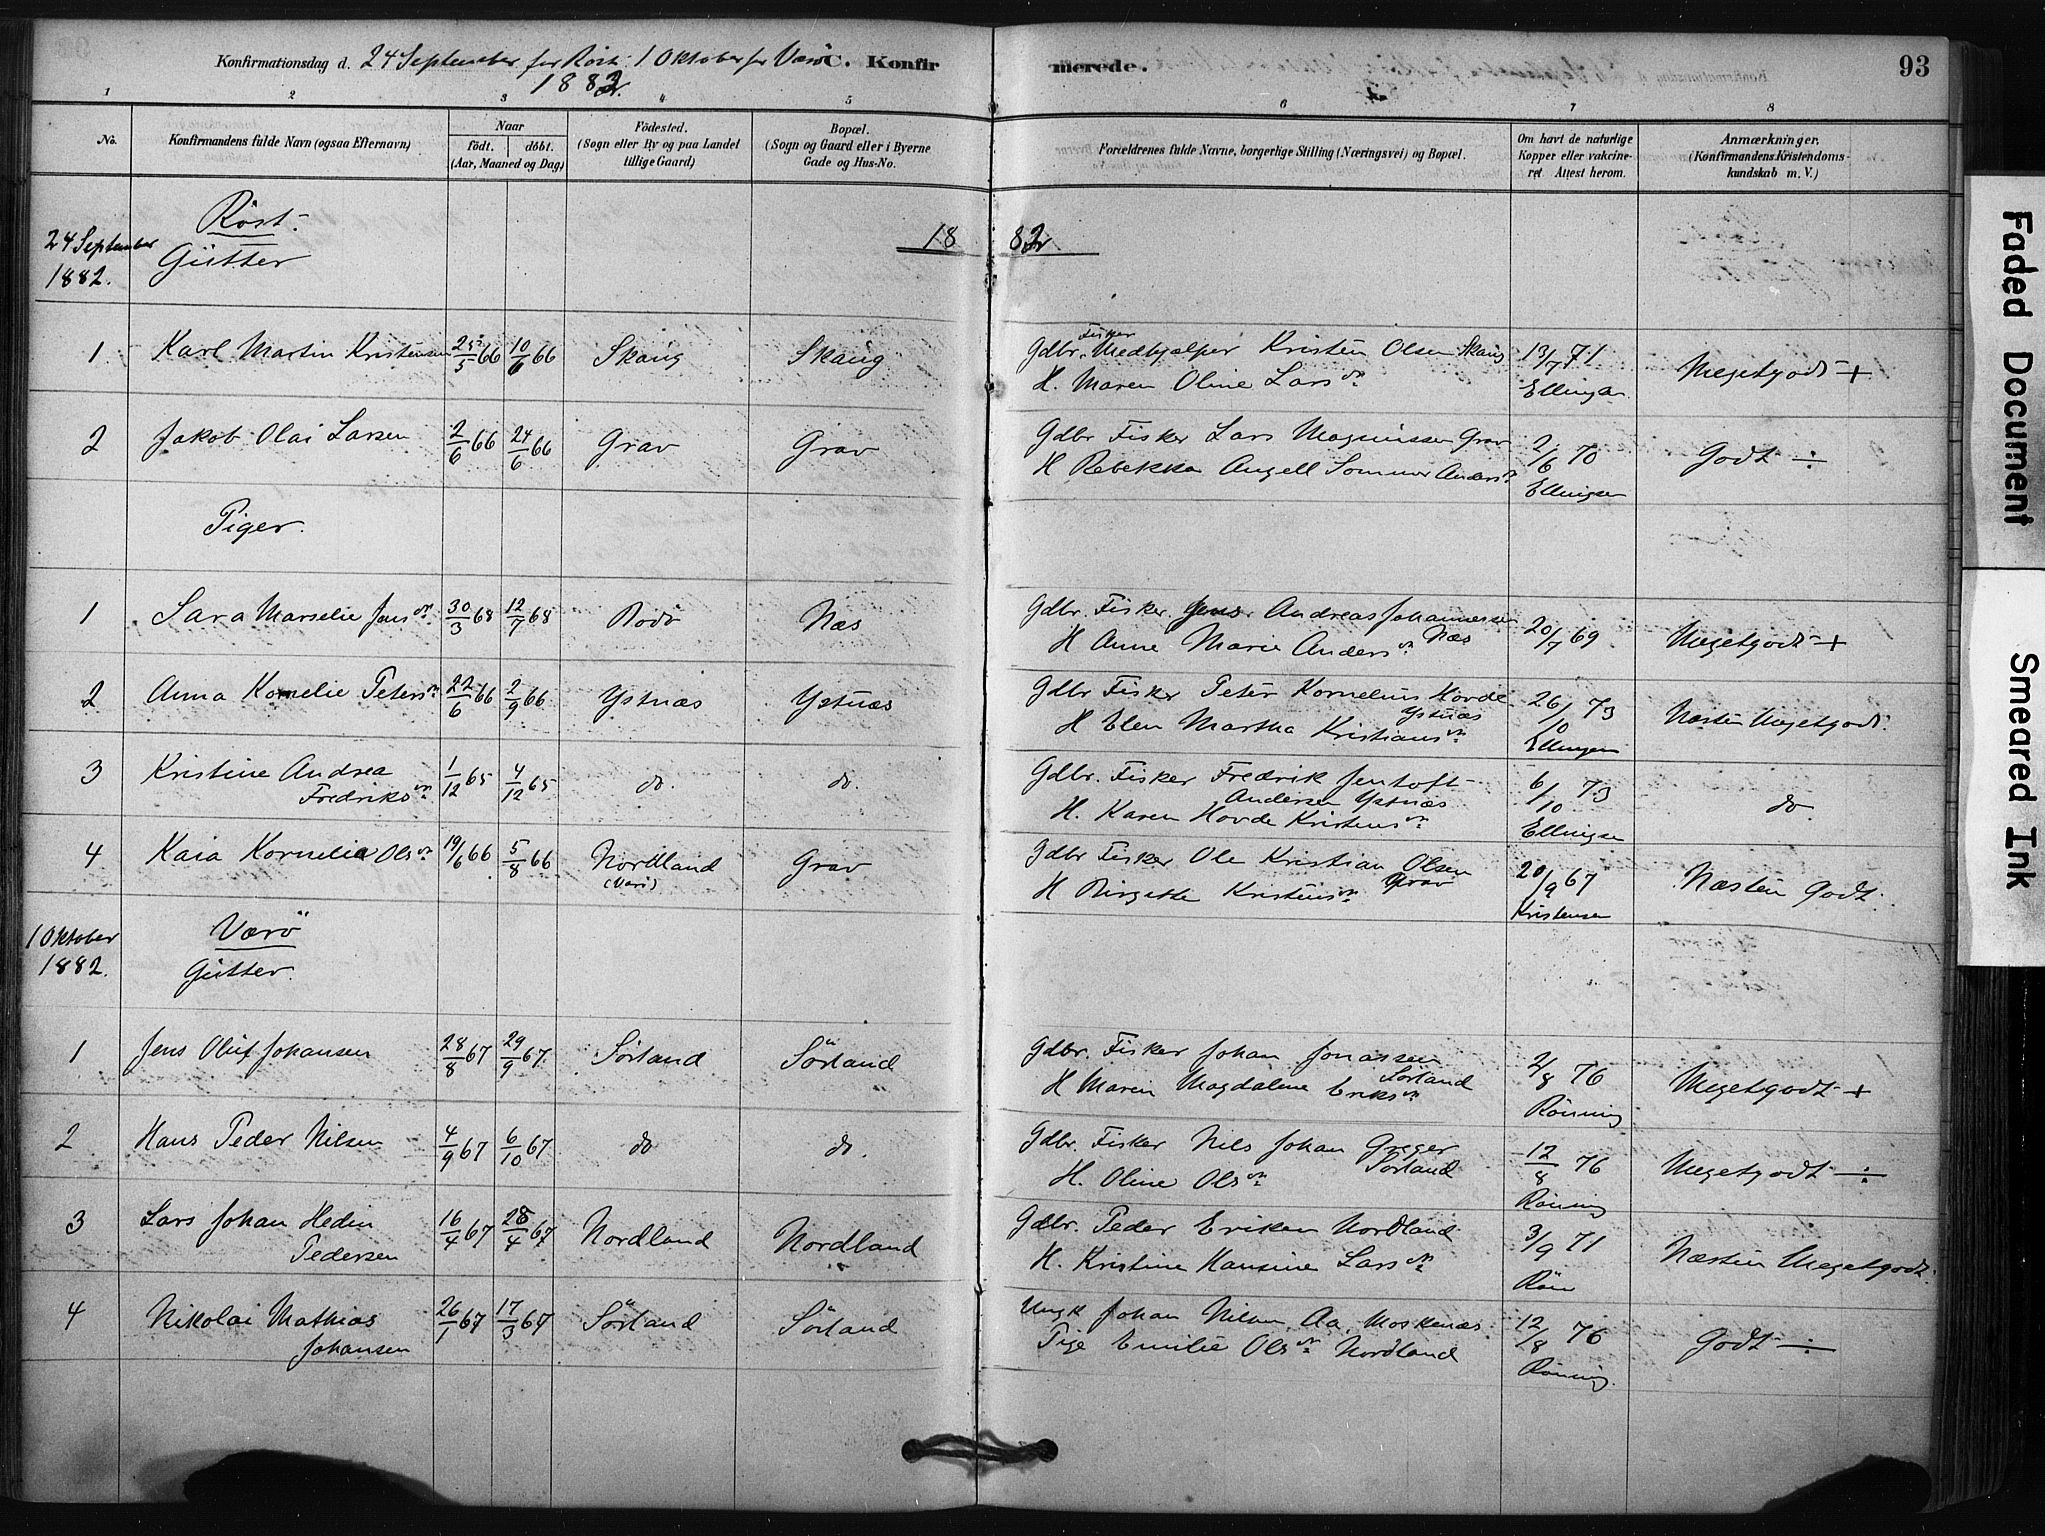 Konfirmationsdag d. 24 September for Röst. 1 Oktober for Værö C. Konfirmerede. 93
1882.
1 2 3 4 5 6 7 8
No. Konfirmandens fulde Navn (ogsaa Efternavn) Naar födt. döbt. (Aar, Maaned og Dag) Födested. (Sogn eller By og paa Landet tillige Gaard) Bopæl. (Sogn og Gaard eller i Byerne Gade og Hus-No. Forældrenes fulde Navne, borgerlige Stilling (Næringsvei) og Bopæl. Om havt de naturlige Kopper eller vakcineret Attest herom. Anmærkninger. (Konfirmandens Kristendomskundskab m. V.)
24 September 1882. Röst.
Gutter
1882
1. Karl Martin Kristensen 25/5 66 10/6 66 Skaug Skaug Gdbr. Fisker Medhjælper Kristen Olsen Skaug 13/7 71
H. Maren Oline Larsdr Ellingsen Megetgodt +
2 Jakob Olai Larsen 2/6 66 24/6 66 Grav Grav Gdbr Fisker Lars Magnussen Grav 2/6 70
H Rebekka Angell Sommer Andersdr Ellingsen Godt ÷
Piger.
1 Sara Marselie Jensdr. 30/3 68 12/7 68 Bodö Næs Gdbr. Fisker Jens Andreas Johannessen
H Anne Marie Andersdr. Næs 20/7 69 Megetgodt +
2 Anna Kornelie Petersdr 22/6 66 2/9 66 Ystnæs Ystnæs Gdbr Fisker Peter Kornelius Hovde
Ystnæs
H Elen Martha Kristiansdr 26/10 73 Ellingsen Næsten Megetgodt.
3 Kristine Andrea
Fredriksdr 1/12 65 4/12 65 do. do. Gdbr. Fisker Fredrik Jentoft
Andersen Ystnæs
H. Karen Hovde Kristensdr 6/10 73 Ellingsen do.
4 Kaia Kornelia Olsdr 19/6 66 5/8 66 Nordland
(Værö) Grav Gdbr Fisker Ole Kristian Olsen
Grav
H Birgitte Kristensdr 20/9 67 Kristensen Næsten Godt.
1 Oktober 1882. Værö
Gutter.
1 Jens Oluf Johansen 28/8 67 29/9 67. Sörland Sörland Gdbr. Fisker Johan Jonassen
Sörland
H Maren Magdalene Eriksdr 2/8 76 Rönning Megetgodt +
2 Hans Peder Nilsen 4/9 67 6/10 67 do do. Gdbr. Fisker Nils Johan Greger
Sörland
H. Oline Olsdr 12/8 76 Röning Megetgodt ÷
3 Lars Johan Hedin
Pedersen 16/4 67 28/4 67 Nordland Nordland Gdbr. Peder Eriksen Nordland
H. Kristine Hansine Larsdr 3/9 71 Næsten Megetgodt.
4 Nikolai Mathias
Johansen 26/1 67 17/3 67 Sörland Sörland Ungk Johan Nilsen, Aa, Moskenæs.
Pige Emilie Olsdr Nordland 12/8 76 Rönning. Godt ÷
Faded Document
Smeared Ink